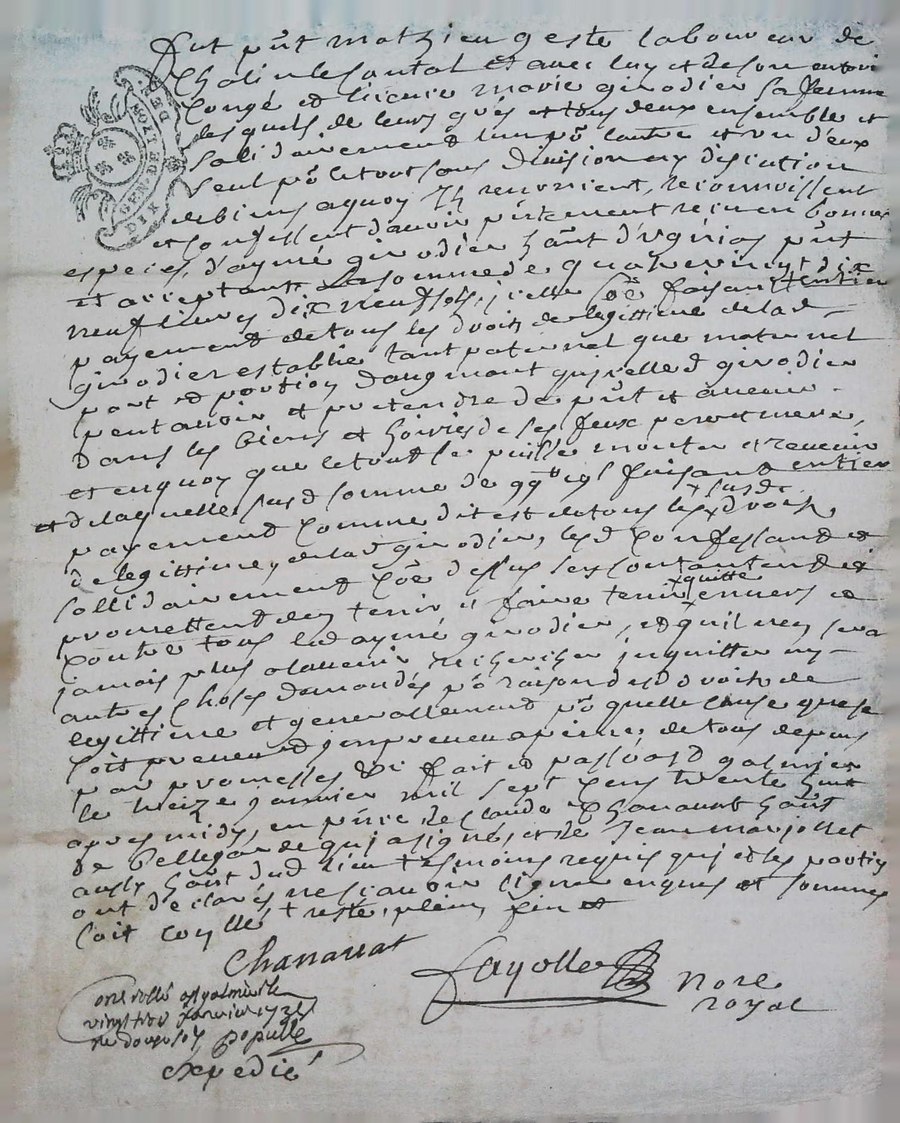 fut pñt mathieu geste laboureur de
Chalin le  et avec luy et de son 
Congé et licence marie girodier sa femme
lesquels de leurs grés et tous deux ensemble et
solidairement lun põ lautre et un d'eux
seul põ le tout sans division ny discution
de biens a quoy Ils renoncent, reconnoissent
et confessent d'avoir pñtement receu en bonnes
especes, d'aymé girodier hãnt d' pñt
et acceptant La somme de quatre vingt dix
neuf livres dix neuf sols, icelle faisant lentier
payement de tous les droits de legittime de lad
girodier establie tant paternel que maternel
part et portion daugment qu'jcelle d girodier
peut avoir et pretendre de pñt et avenir
dans les biens et hoiries de ses feux pere et mere,
et en quoy que le tout se puisse monter et revenir
et de laquelle susd somme de 99ᵗᵗ 19ˢ faisant lentier
payement comme dit est de tous les x susds droits
de legittime, de lad girodier, les d confessant et
sollidairement cõe dessus se contantent et
promettent den tenir et faire tenir x quitte envers et
contre tous led aymé girodier, et quil nen sera
jamais plus a lavenir recherché inquitter ny
autres choses demandés põ raison desd droits de
legittime et generallement põ quelle cause que se
soit preveue et jmpreveue a peine, de tous depens
par promesses & fait et passé aud galmier
le treize janvier mil sept cens trente huit
apres midy, en pñce de Claude Chanavat hãnt
de Bellegarde qui a signé, et de Jean marjollet
aussy hãnt dud lieu tesmoins requis qui et les parties
ont declarés ne scavoir signer enquis et sommés
soit scellé + reste, plein, fin et
Chanavat
fayolle Nore
royal
controllé a Sᵗ galmier le
vingt trois janvier 1738
re douze sols populle
expedié